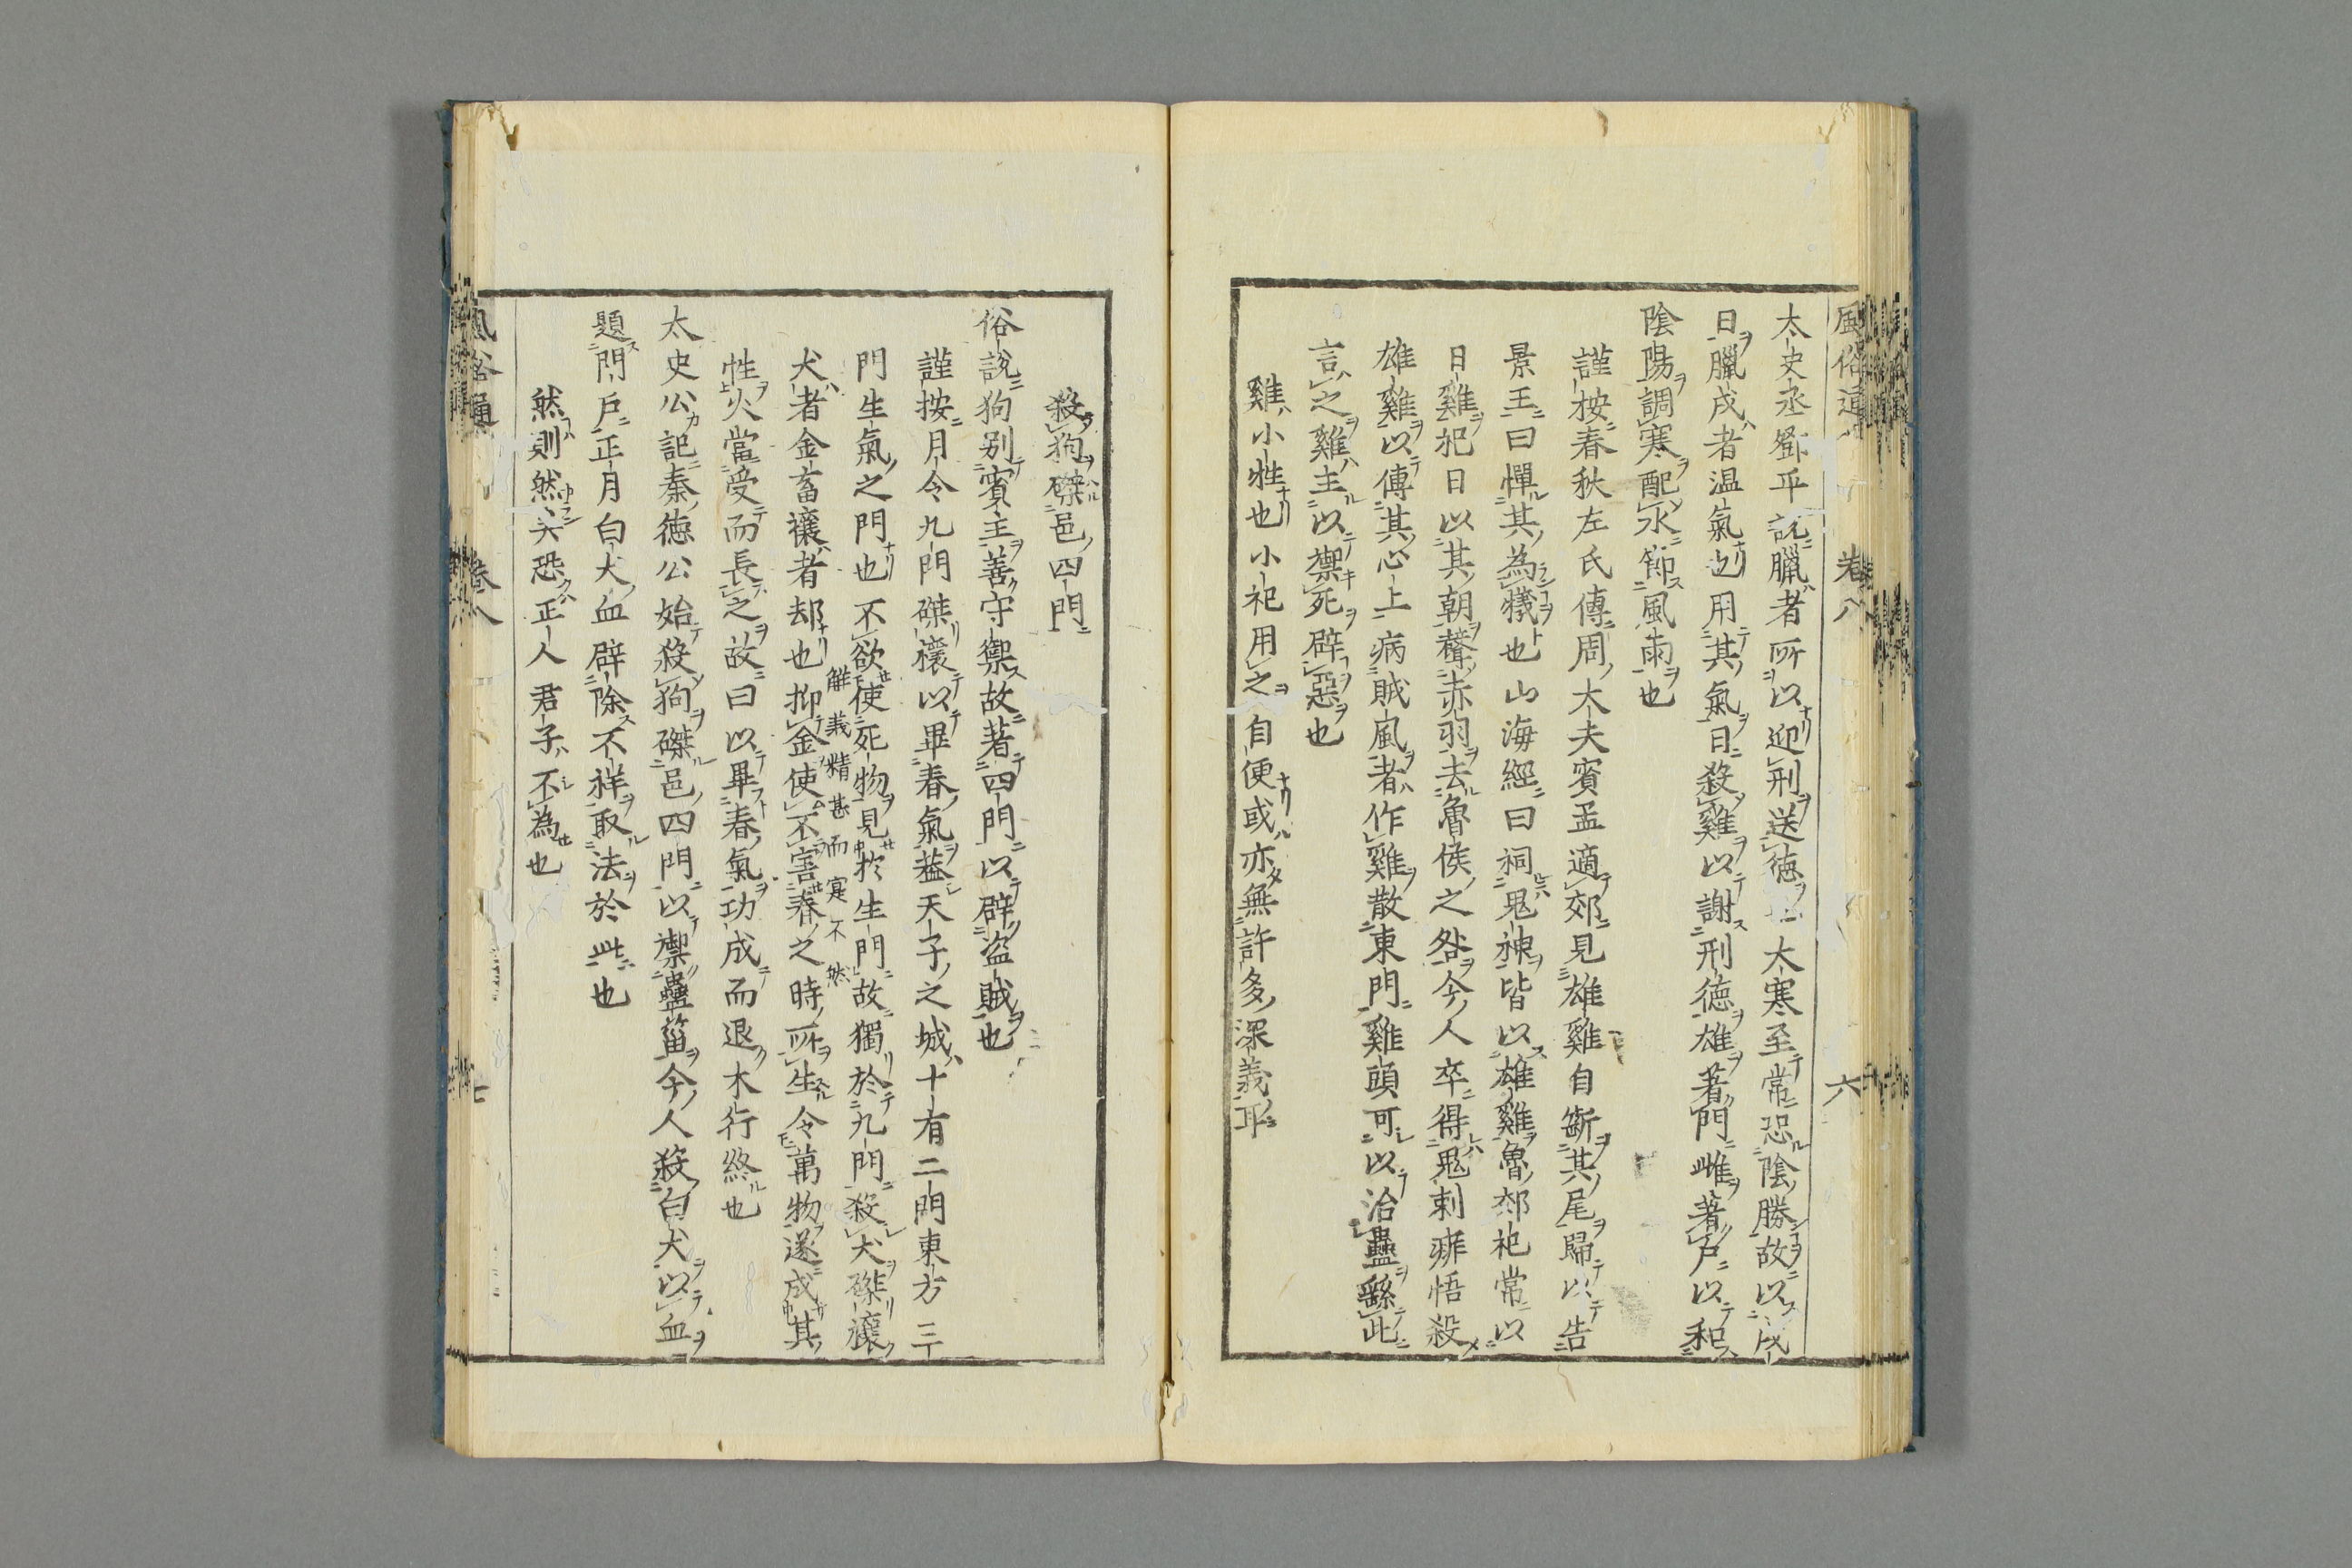 風俗通 卷八 六
太史丞鄧平説臘者所以迎刑送徳也大寒至常恐陰勝故以戌
日臘戌者温氣也用其氣日殺雞以謝刑徳雄著門雌著戸以和
陰陽調寒配水節風雨也
謹按春秋左氏傳周大夫賓孟適郊見雄雞自斷其尾歸以告
景王曰憚其為犧也山海經曰祠鬼神皆以雄雞魯郊祀常以
日雞祀日以其朝聲赤羽去魯侯之咎今人卒得鬼刺痱悟殺
雄雞以傳其心上病賊風者作雞散東門雞頭可以治蠱繇此
言之雞主以禦死辟惡也
雞小牲也小祀用之自便或亦無許多深義耳
殺狗磔邑四門
俗説狗别賓主善守禦故著四門以辟盗賊也
謹按月令九門磔禳以畢春氣葢天子之城十有二門東方三
門生氣之門也不欲使死物見於生門故獨於九門殺犬磔禳
犬者金畜禳者却也抑金使不害春之時所生令萬物遂成其
解義精甚而寔不然
性火當受而長之故曰以畢春氣功成而退木行終也
太史公記秦徳公始殺狗磔邑四門以禦蠱菑今人殺白犬以血
題門戸正月白犬血辟除不祥取法於此也
然則然矣恐正人君子不為也
風俗通 卷八 七